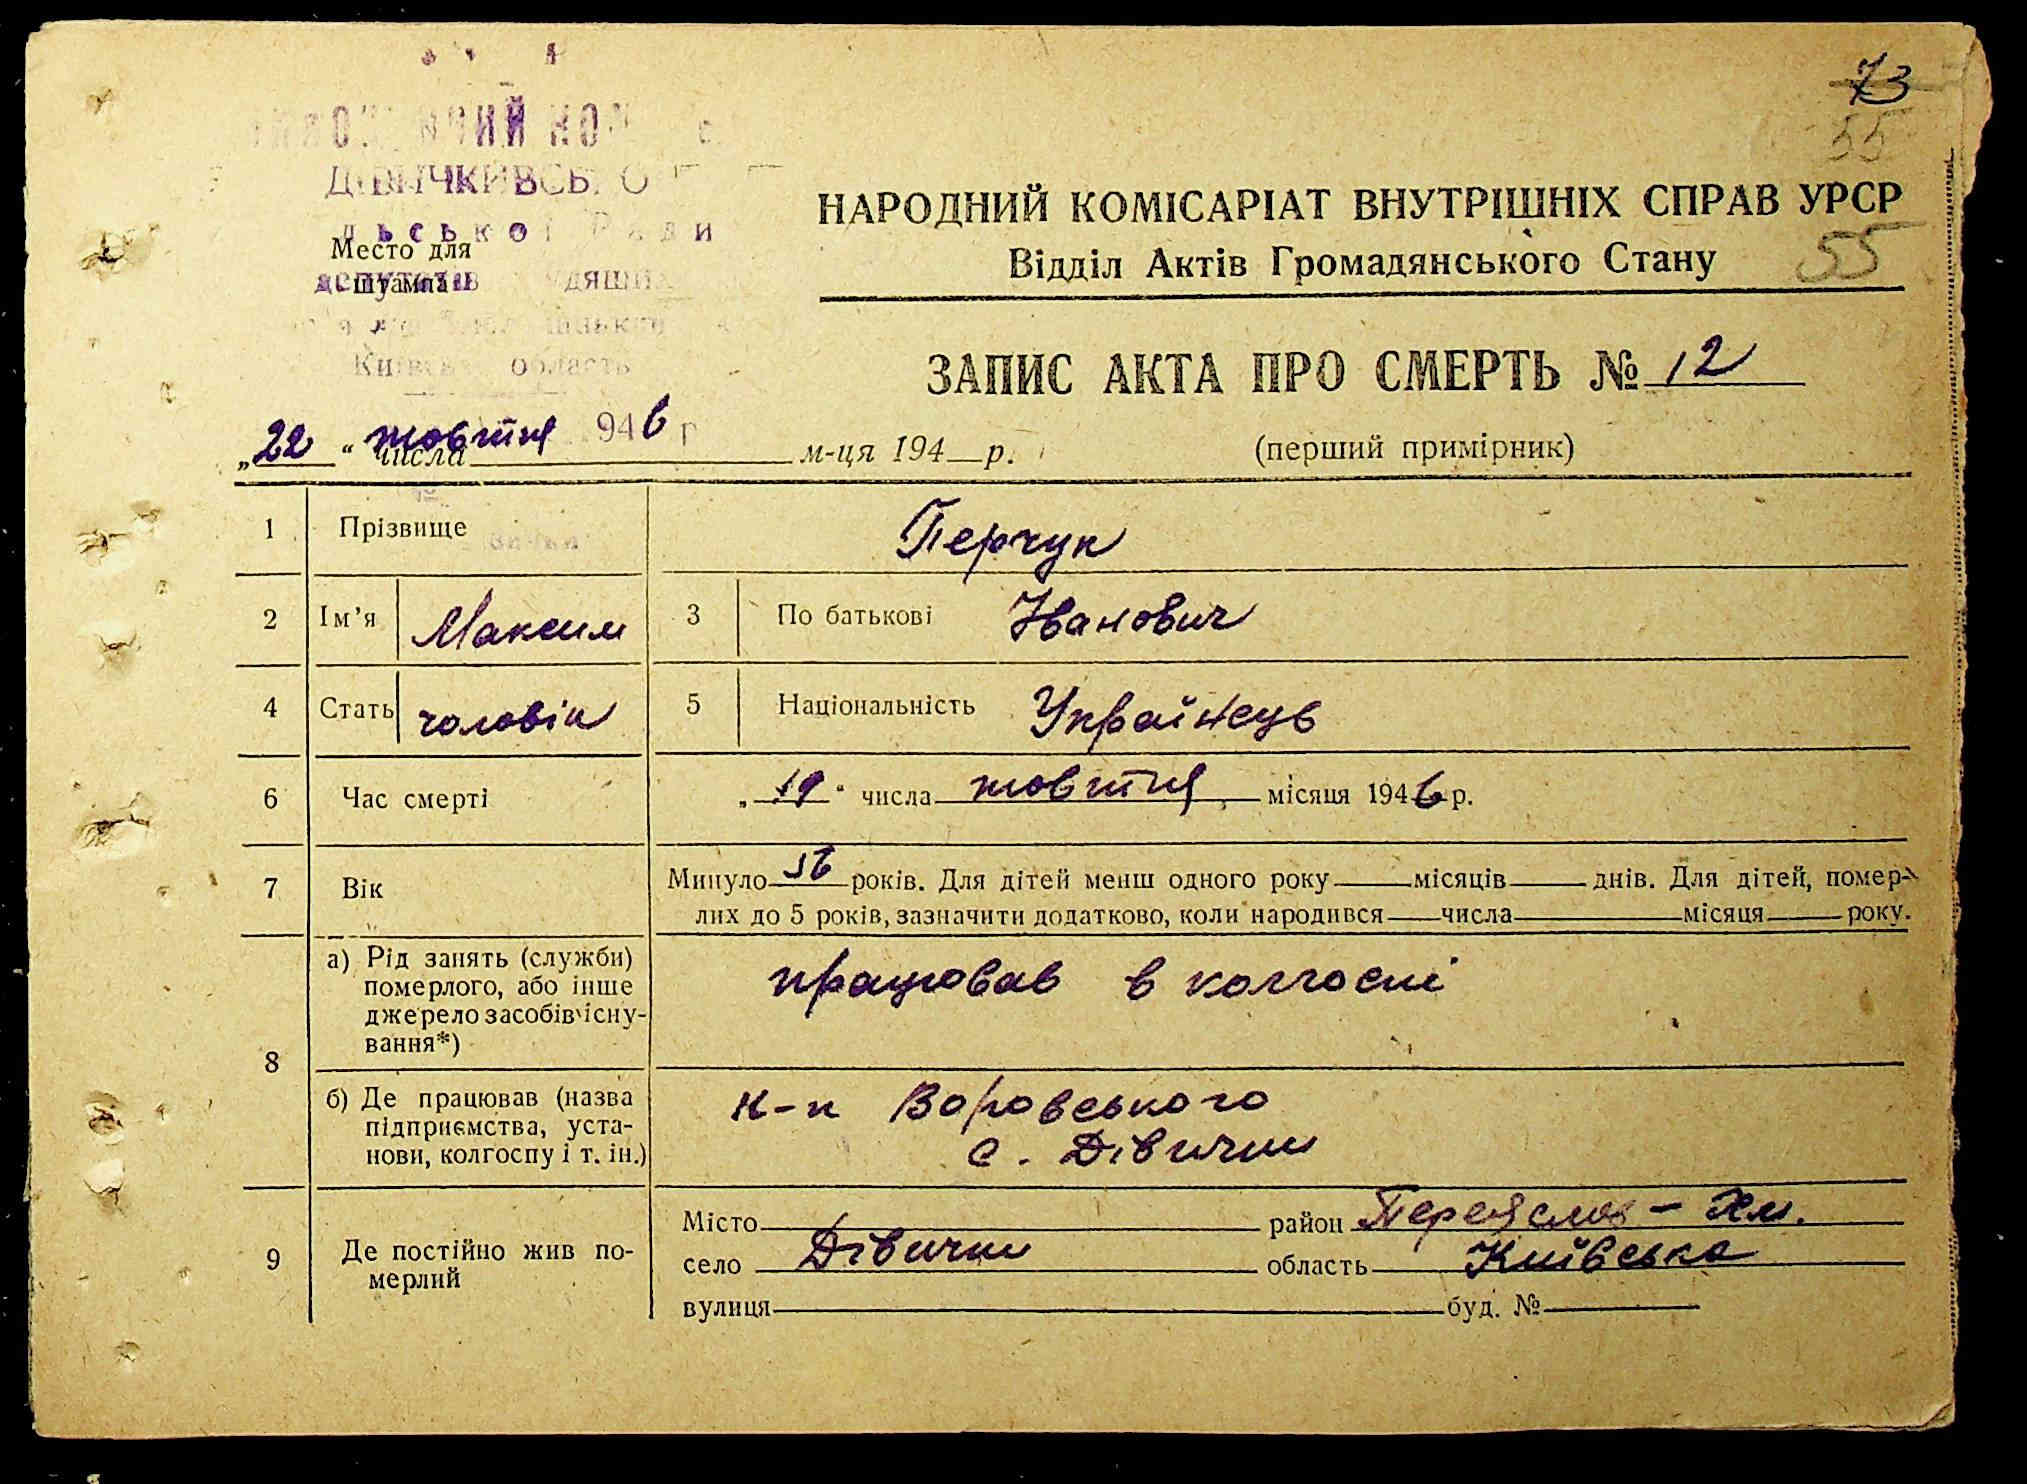 73
55
НАРОДНИЙ КОМІСАРІАТ ВНУТРІШНІХ СПРАВ УРСР
55
Відділ Актів Громадянського Стану
ДІВИЧКІВСЬКО
Место для
штампа
депутатів
Київська область
ЗАПИС АКТА ПРО СМЕРТЬ № 12
„22“ жовтня 1946 г
числа м-ця 194 р.
(перший примірник)
1 Прізвище Перчук
2 Ім’я Максим 3 По батькові Іванович
4 Стать чоловік 5 Національність Українець
6 Час смерті „19“ числа жовтня місяця 1946 р.
7 Вік Минуло 56 років. Для дітей менш одного року місяців днів. Для дітей, помер-
лих до 5 років, зазначити додатково, коли народився числа місяця року.
8 а) Рід занять (служби)
померлого, або інше
джерело засобів існу-
вання*)
працював в колгоспі
б) Де працював (назва
підприємства, уста-
нови, колгоспу і т. ін.)
к-п Воровського
с. Дівички
9 Де постійно жив по-
мерлий
Місто район Переяслав-Хм.
село Дівички область Київська
вулиця буд. №